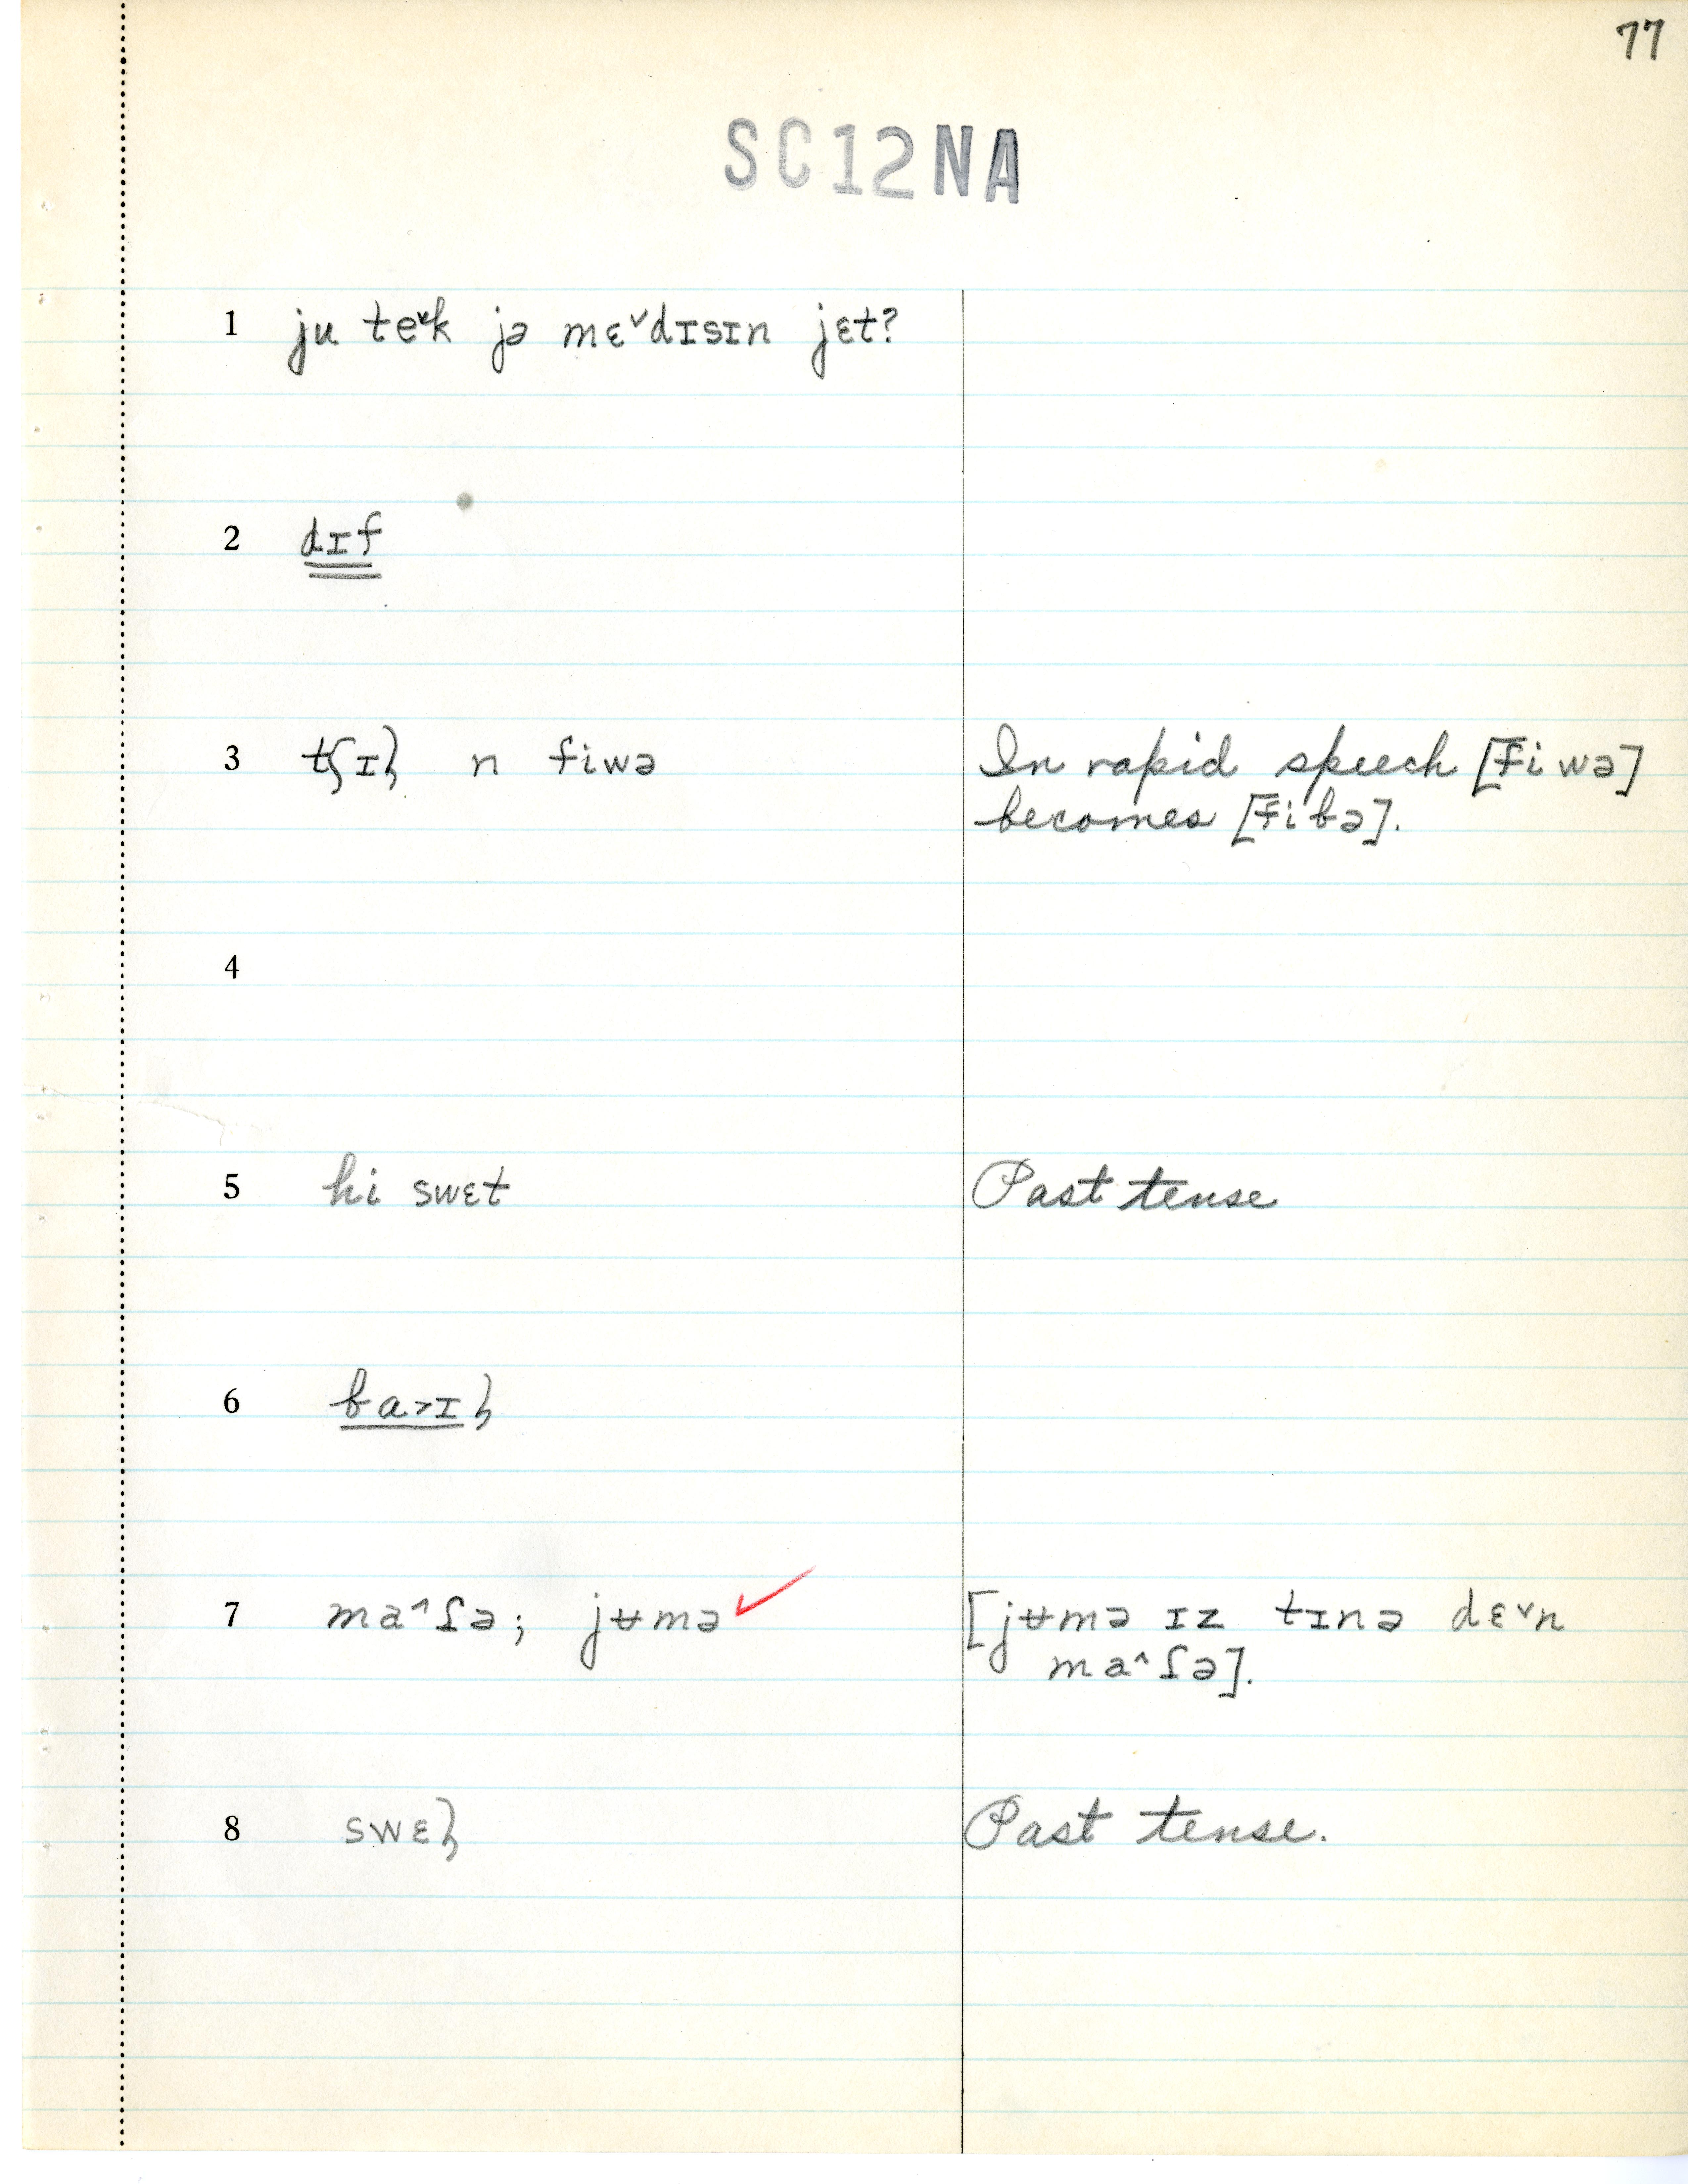 77
SC12NA
1 ju te˅k jə mɛ˅dɪsɪn jɛt?
2 dɪf
3 tʃɪɫ n fiwə In rapid speech [fiwə]
becomes [fibə].
4
5 hi swɛt Past tense
6 ba˃ɪɫ
7 ma˄ʃə; jʉmə ✓ [jʉmə ɪz tɪnə dɛ˅n
ma˄ʃə].
8 swɛɫ Past tense.